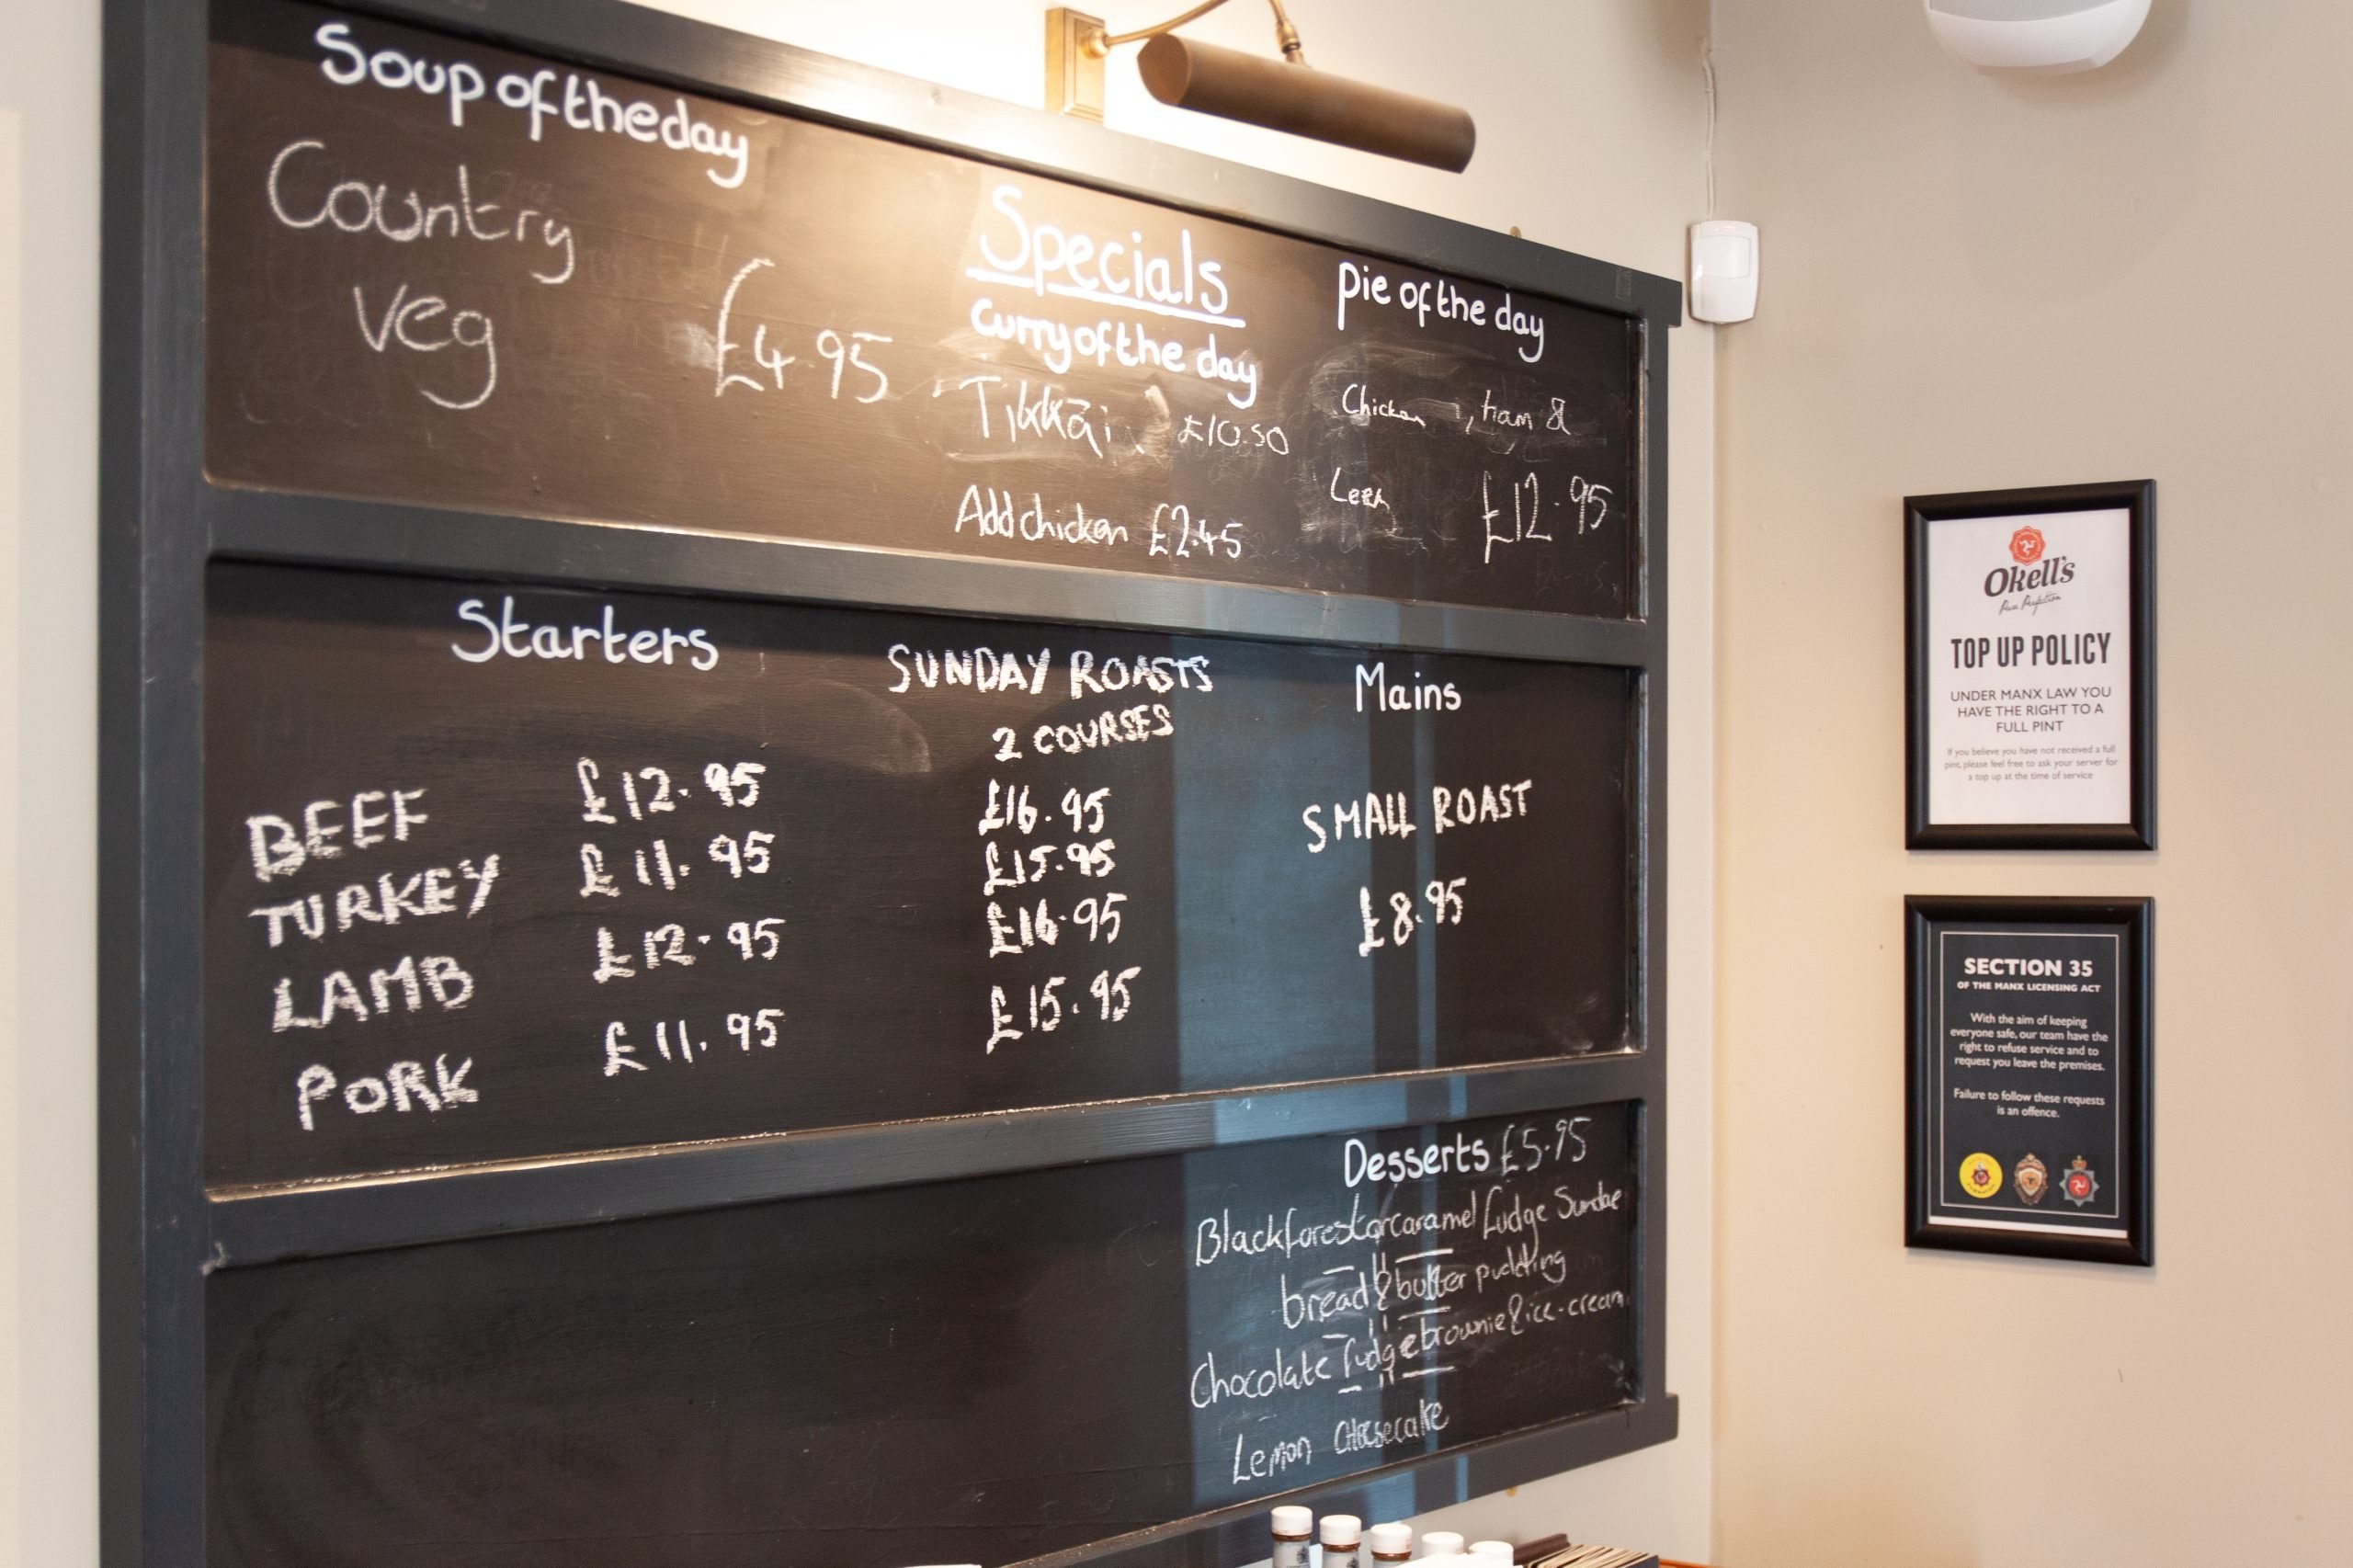 Soup of the day
Country
Veg
£4.95
Specials
curry of the day
Tikka
£10.50
Add chicken £2.45
pie of the day
Chicken, ham &
Leek
£12.95
Starters
SUNDAY ROASTS
2 COURSES
Mains
BEEF £12.95 £16.95
TURKEY £11.95 £15.95
LAMB £12.95 £16.95
PORK £11.95 £15.95
SMALL ROAST
£8.95
Desserts £5.95
Blackforest or caramel fudge Sundae
bread & butter pudding
Chocolate fudge brownie & ice-cream
Lemon Cheesecake
Okell's
TOP UP POLICY
UNDER MANX LAW YOU
HAVE THE RIGHT TO A
FULL PINT
If you believe you have not received a full
pint, please feel free to ask your server for
a top up at the time of service
SECTION 35
OF THE MANX LICENSING ACT
With the aim of keeping
everyone safe, our team have the
right to refuse service and to
request you leave the premises.
Failure to follow these requests
is an offence.